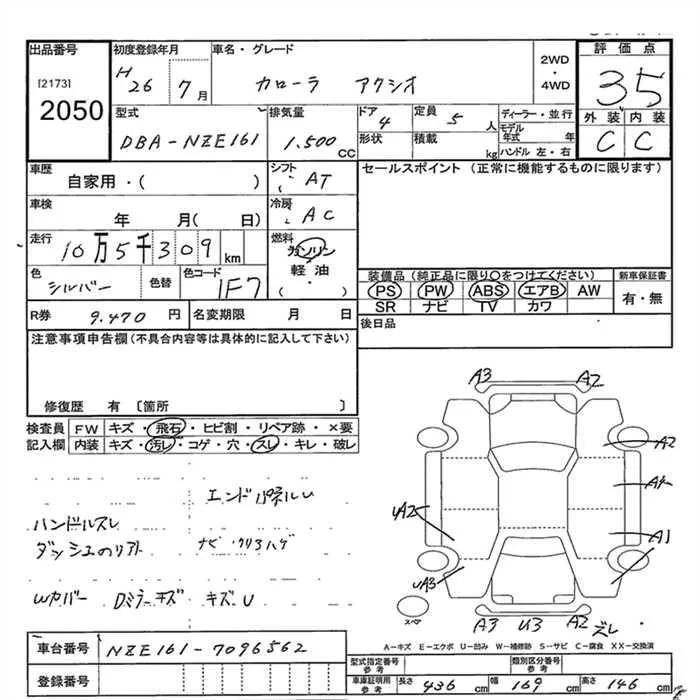 出品番号 初度登録年月 車名・グレード 2WD・4WD 評価点
[2173] H26 7月 カローラ アクシオ 35
2050
型式 排気量 ドア 4 定員 5 人 ディーラー・並行 外装 内装
DBA-NZE161 1.500 CC 形状 積載 kg モデル年式 年 C C
ハンドル 左・右
車歴 自家用・( ) シフト AT セールスポイント (正常に機能するものに限ります)
車検 年 月( 日) 冷房 AC
走行 10万5千309 km 燃料 ガソリン
軽油
( )
色 シルバー 色替 色コード 1F7
装備品 (純正品に限り○をつけてください) 新車保証書
PS PW ABS エアB AW 有・無
SR ナビ TV カワ
R券 9.470 円 名変期限 月 日 後日品
注意事項申告欄(不具合内容等は具体的に記入して下さい)
修復歴 有 〔箇所 〕
検査員 FW キズ・飛石・ヒビ割・リペア跡・×要
記入欄 内装 キズ・汚レ・コゲ・穴・スレ・キレ・破レ
A3 A2
A2
A1
UA2
UA3
A3 U3 A2 ズレ
スペア
エンドパネルU
ハンドルスレ
ダッシュ
Wカバー Dミラーキズ キズU
A-キズ E-エクボ U-凹み W-補修跡 S-サビ C-腐食 XX-交換済
車台番号 NZE161-7096562
登録番号
型式指定番号 参考 類別区分番号 参考
車庫証明用 参考 長さ 436 cm 幅 169 cm 高さ 146 cm